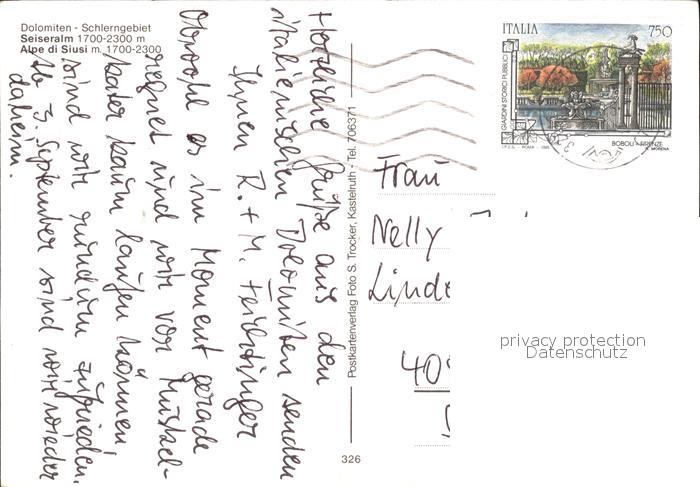 Dolomiten - Schlerngebiet
Seiseralm 1700-2300 m
Alpe di Siusi m. 1700-2300
Herzliche Grüße aus den
italienischen Dolomiten senden
Ihnen R. + M.
Obwohl es im Moment gerade
regnet und wir vor Muskel-
kater kaum laufen können,
sind wir rundum zufrieden.
Ab 3. September sind wir wieder
daheim.
Postkartenverlag Foto S. Trocker, Kastelruth - Tel. 706371
326
ITALIA 750
GIARDINI STORICI PUBBLICI
BOBOLI - FIRENZE
Frau
Nelly
Linde
40
privacy protection
Datenschutz